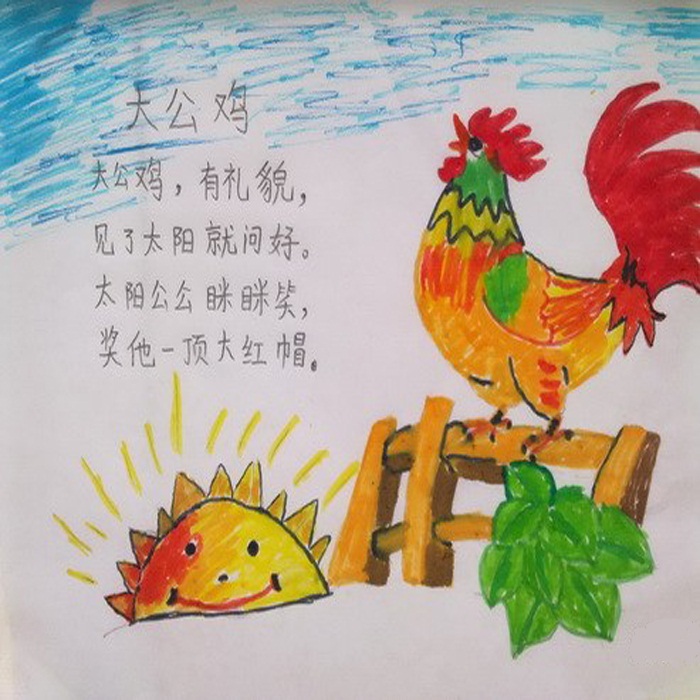 大公鸡
大公鸡，有礼貌，
见了太阳就问好。
太阳公公眯眯笑，
奖他一顶大红帽。